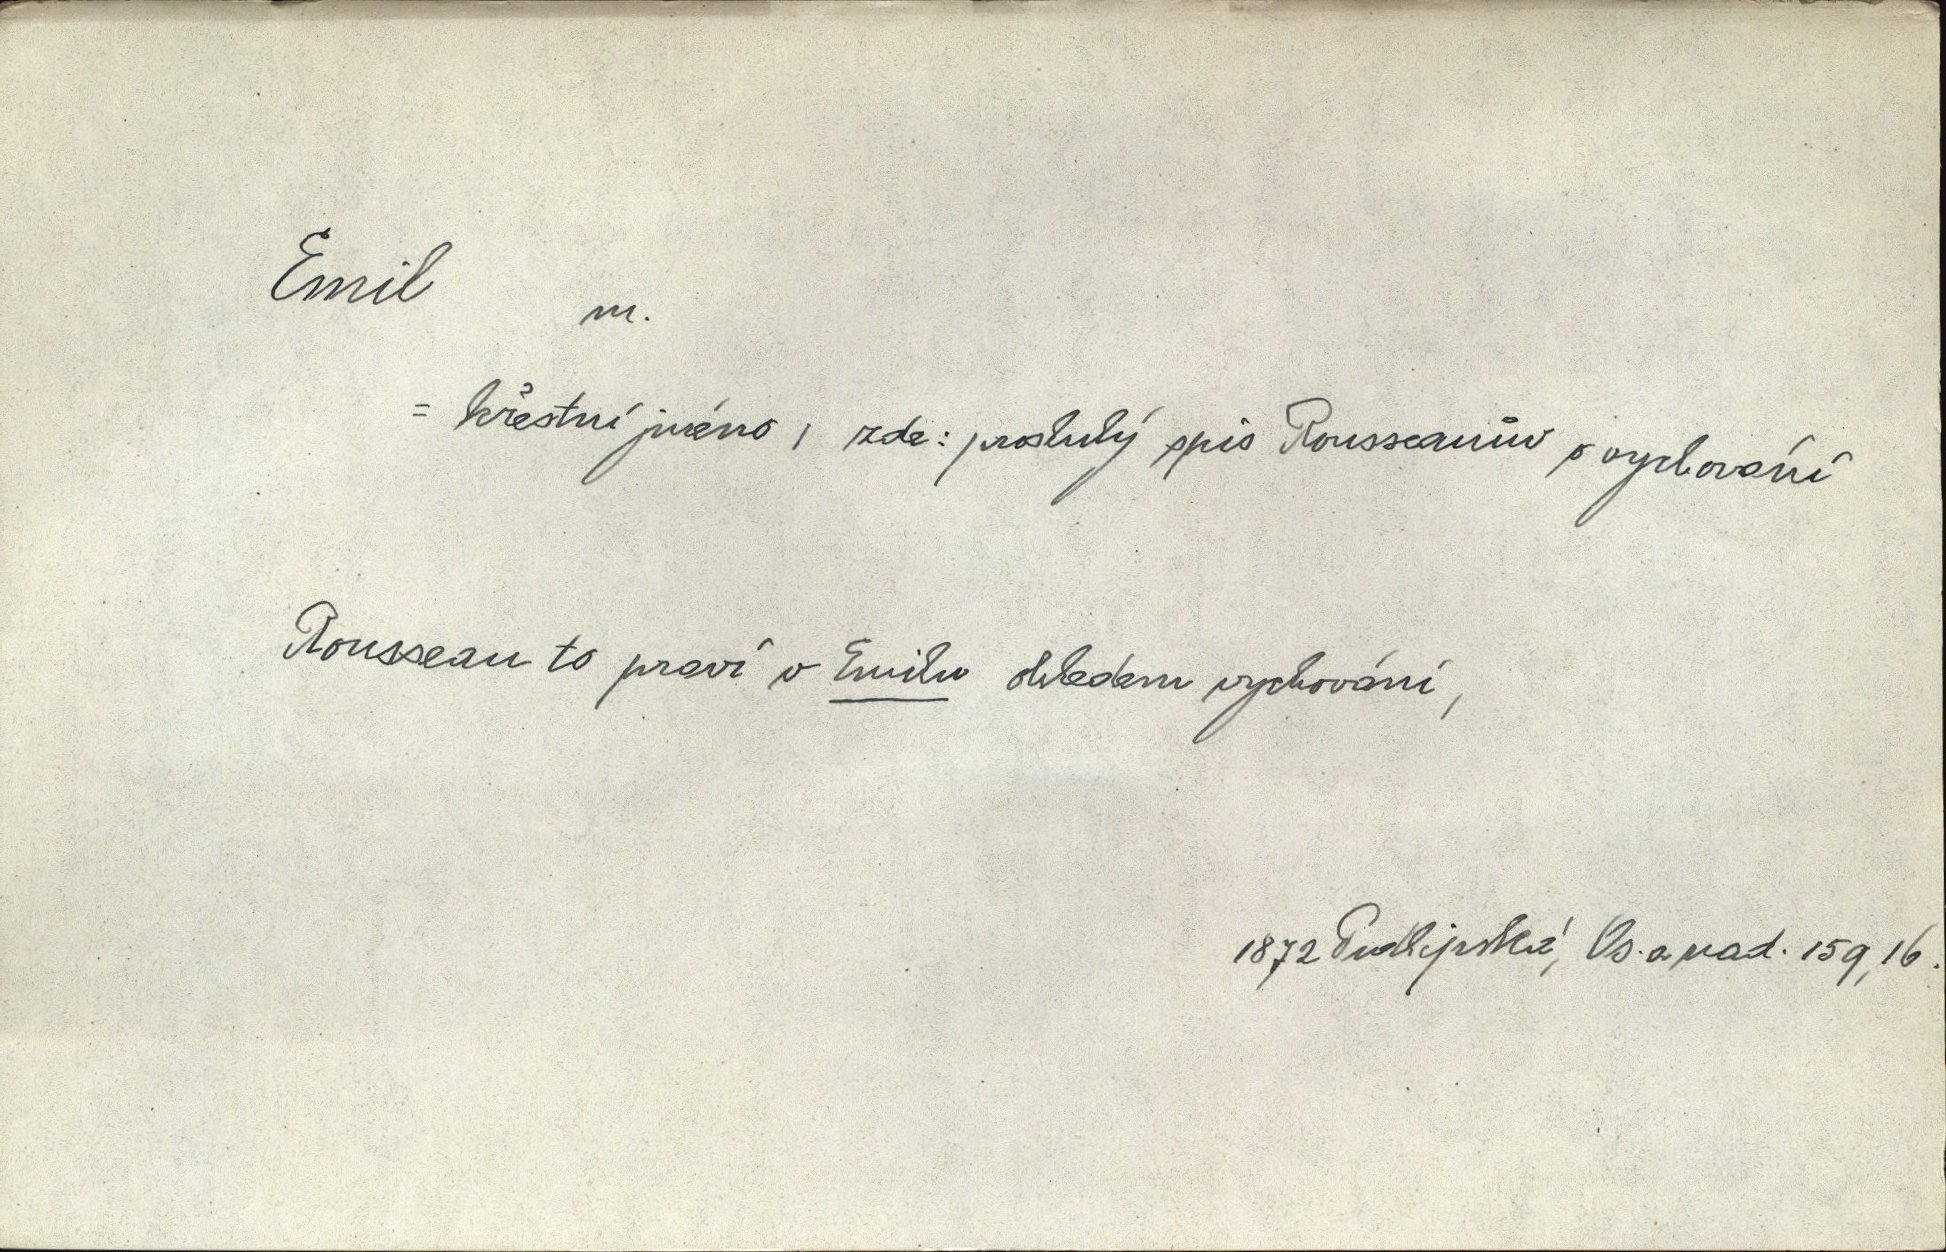 Emil
m.
= křestní jméno, zde: proslulý spis Rousseaůw o vychování
Rousseau to praví v Emilu ohledem vychování,
1872 Podlipská, Os. a nad. 159,16.